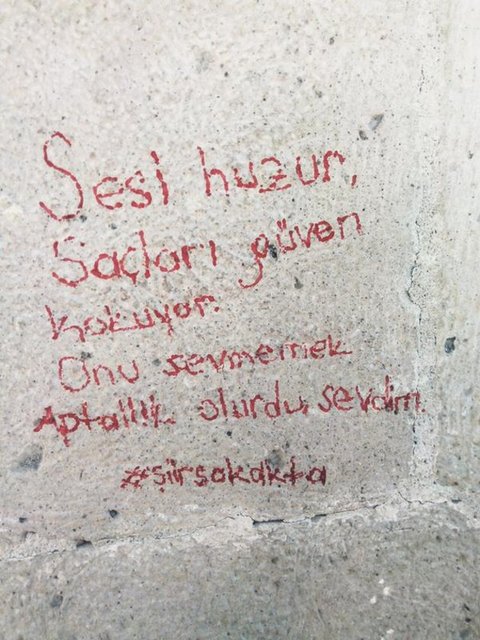 Sesi huzur,
Saçları güven
kokuyor.
Onu sevmemek
Aptallık olurdu, sevdim.
#şiirsokakta